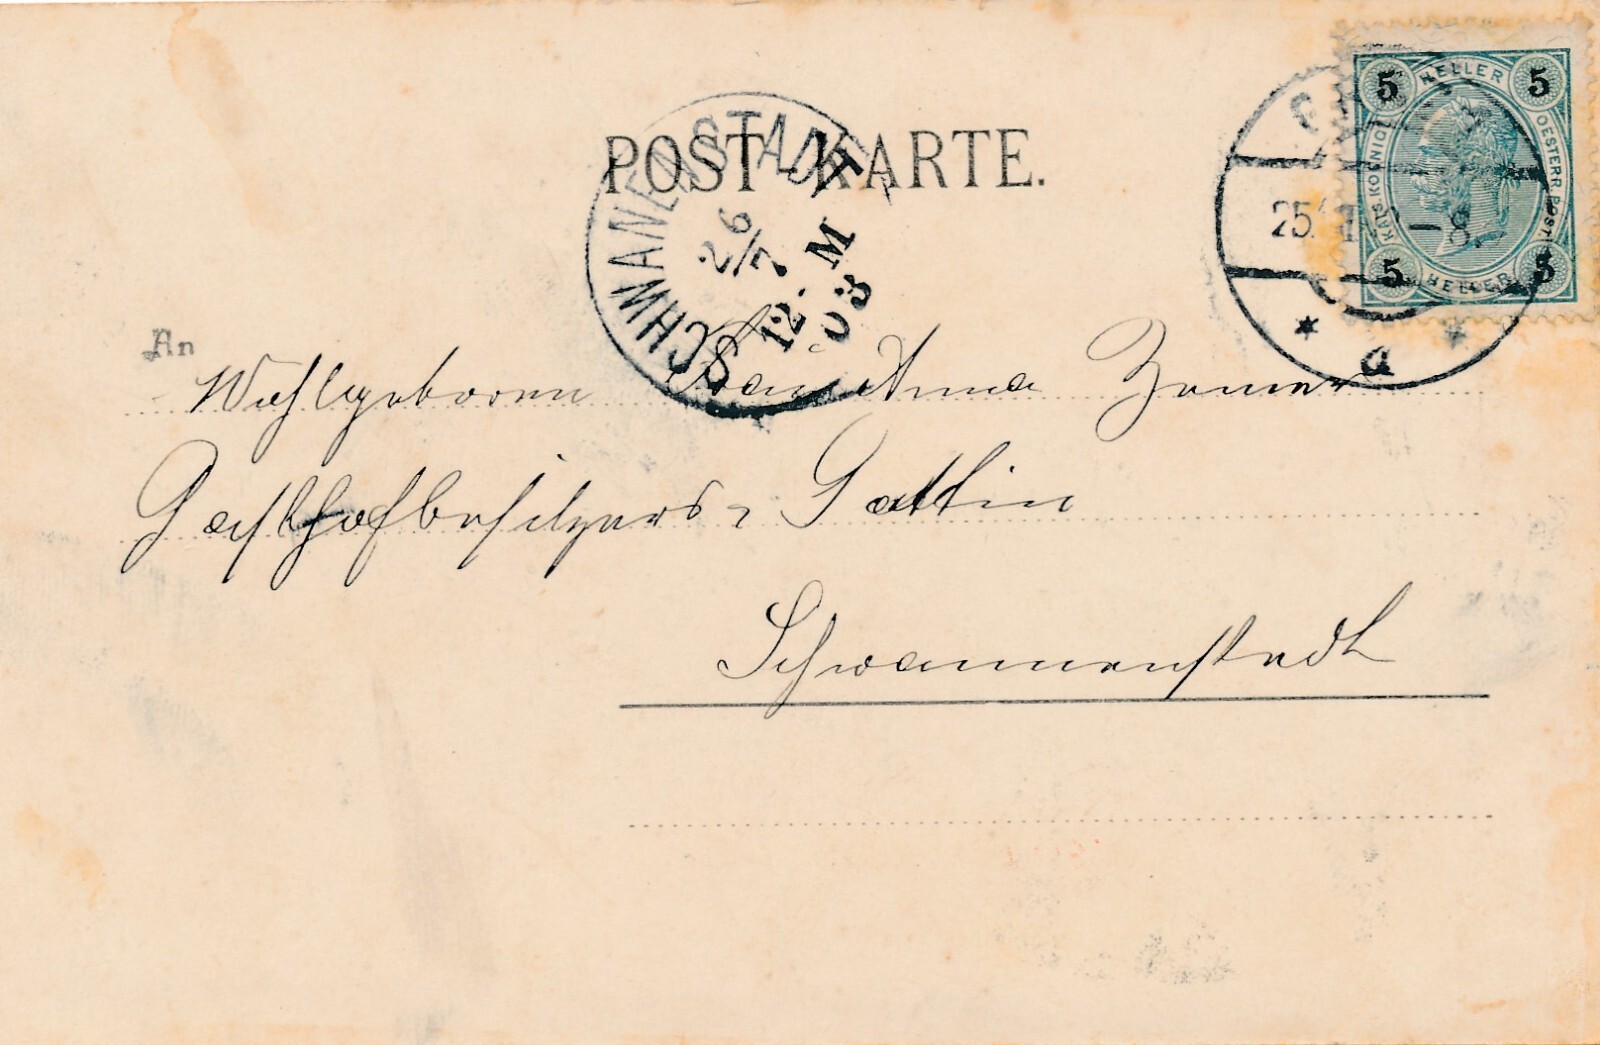 POST-KARTE.
SCHWANENSTADT
26/7
12·M
03
5 HELLER 5
KAIS. KOENIGL. OESTERR. POST
5 HELLER 5
25. 8
* a *
An
Wohlgeboren Frau Anna Zauner
Gasthofbesitzers, Gattin
Schwannenstadt